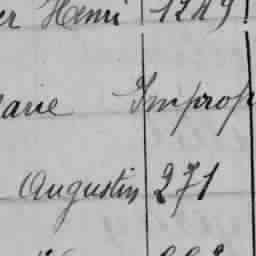 er Henri 1249
arie Improp
Augustin 271